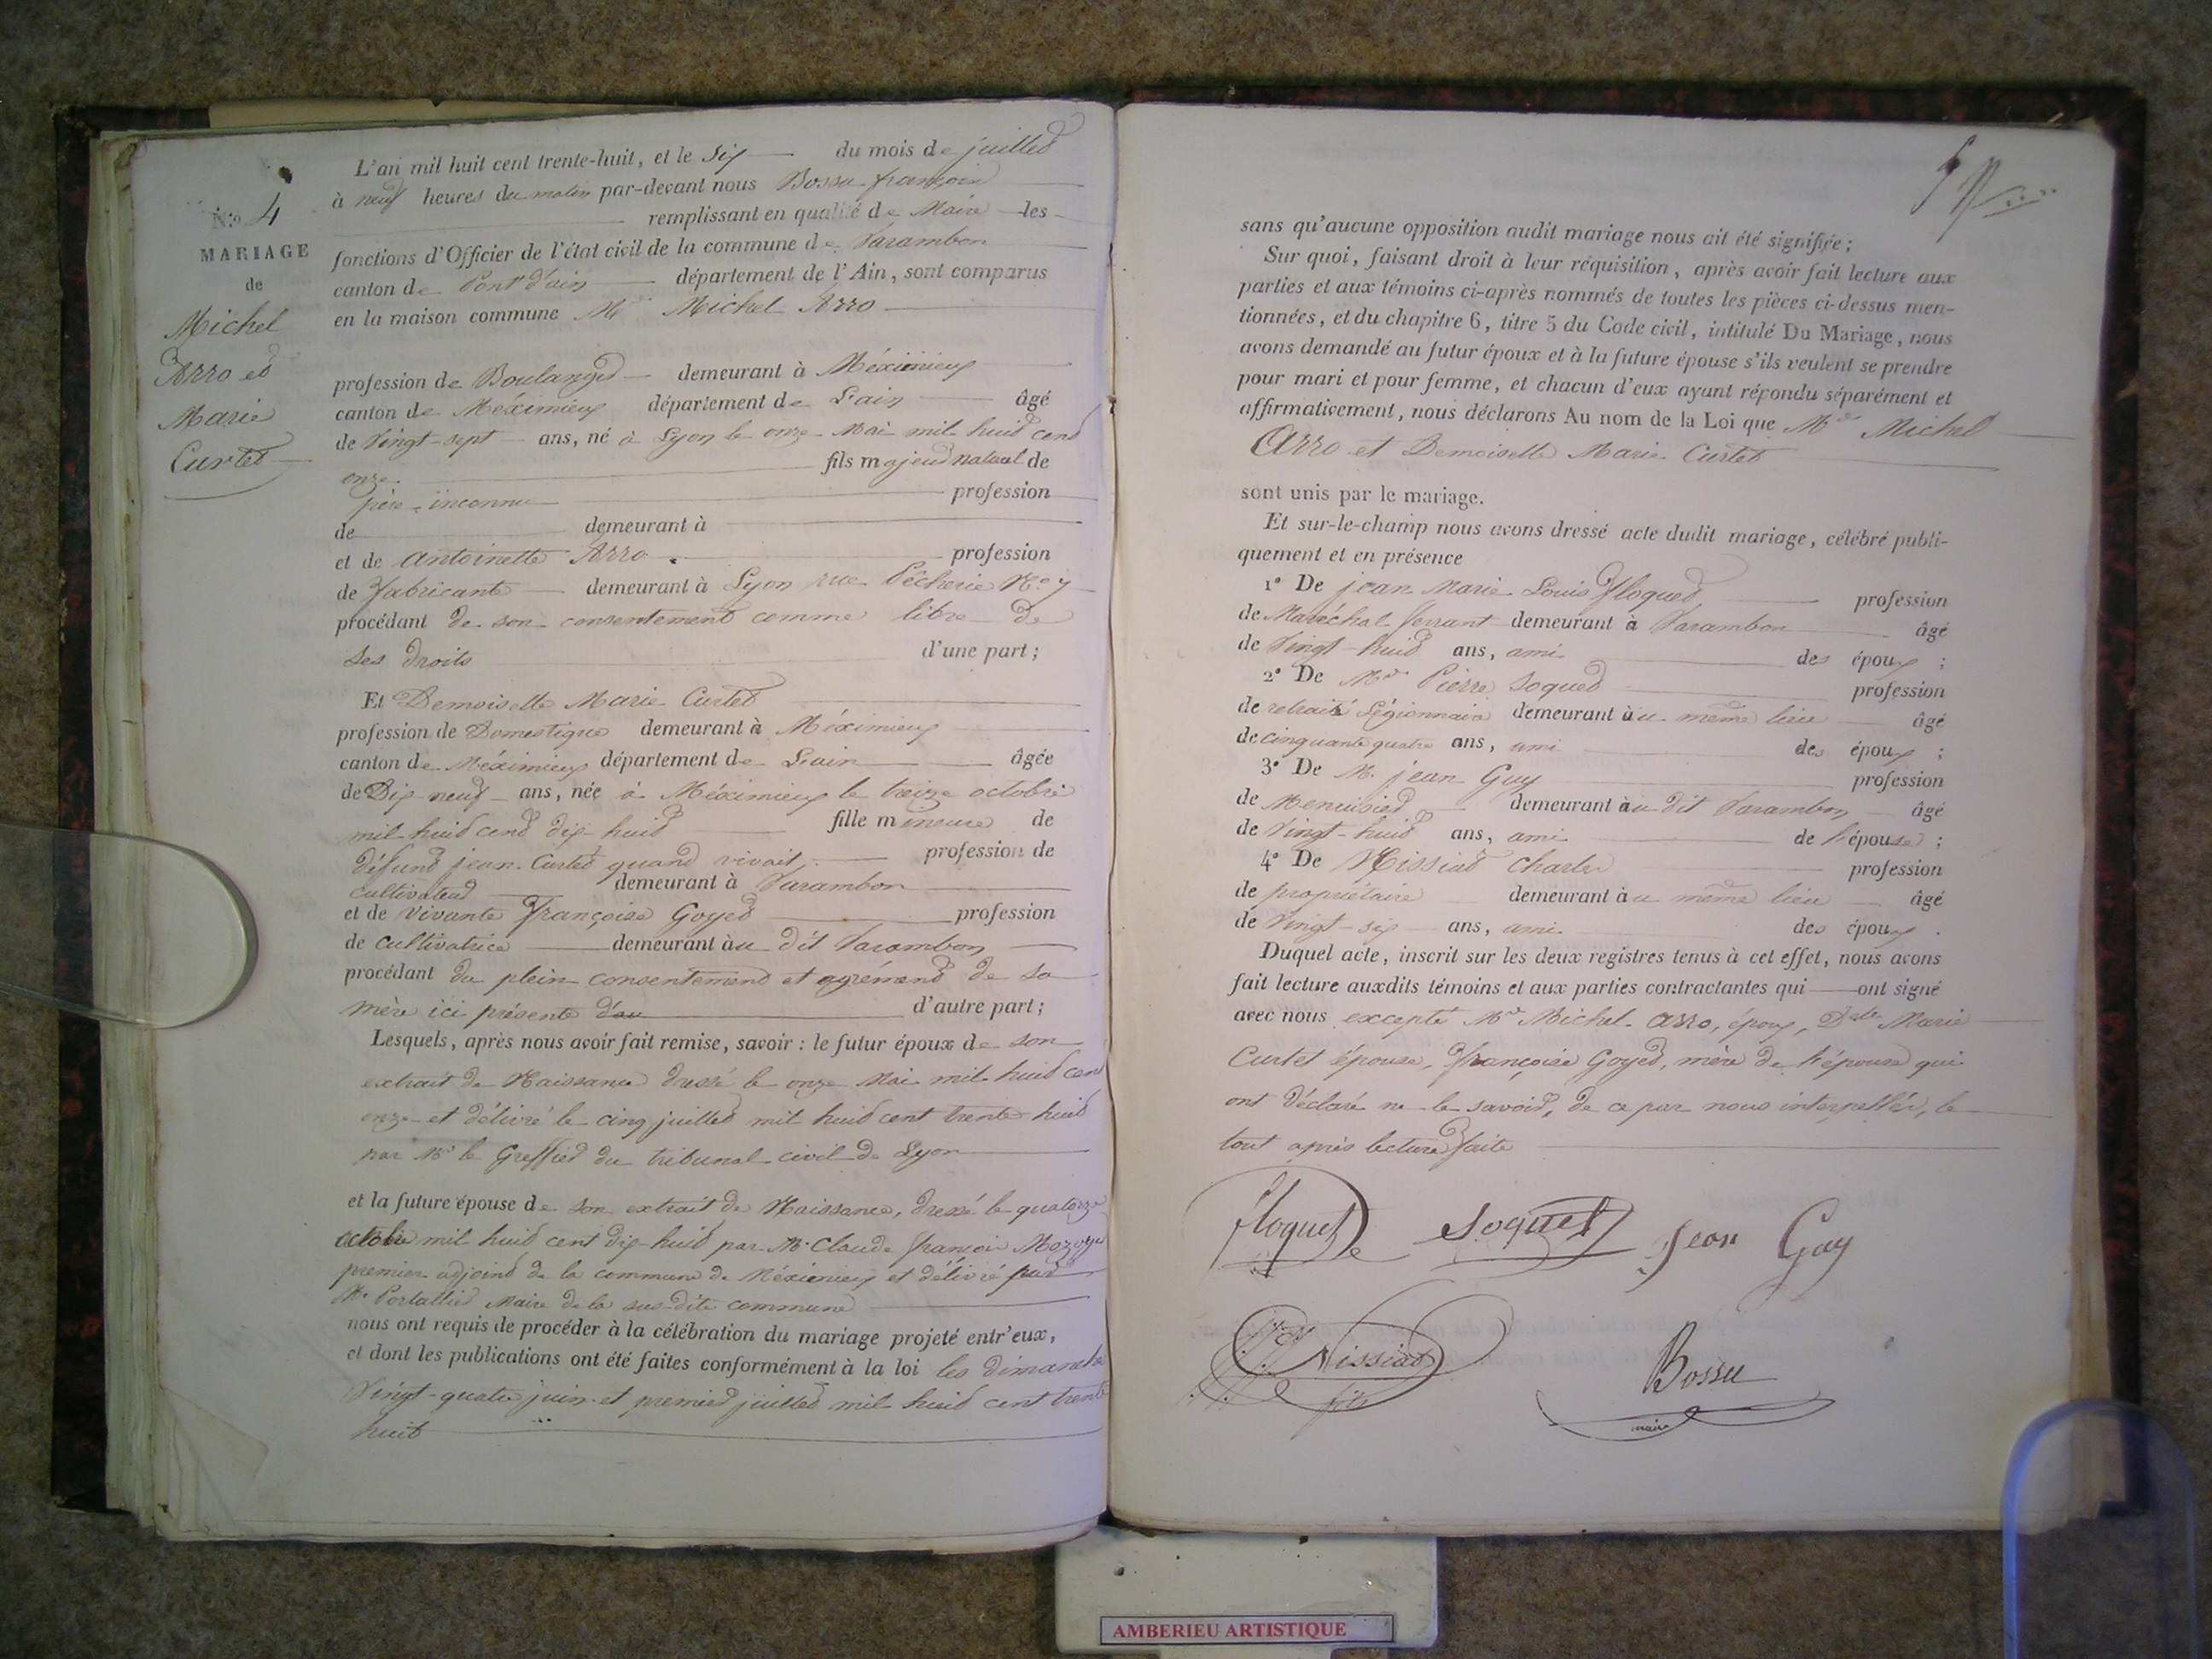 N.o 4
MARIAGE
de
Michel
Arro et
Marie
Curtet
L'an mil huit cent trente-huit, et le Six du mois de juillet
à neuf heures du matin par-devant nous Bossu françois
remplissant en qualité de Maire les
fonctions d'Officier de l'état civil de la commune de Varambon
canton de Pont d'ain département de l'Ain, sont comparus
en la maison commune Mr Michel Arro
profession de Boulanger demeurant à Méximieux
canton de Méximieux département de L'ain âgé
de Vingt-sept ans, né à Lyon le onze Mai mil huit cent
onze fils majeur naturel de
père inconnu profession
de demeurant à
et de Antoinette Arro profession
de fabricante demeurant à Lyon rue Pêcherie No 7
procédant de son consentement comme libre de
ses droits d'une part;
Et Demoiselle Marie Curtet
profession de Domestique demeurant à Méximieux
canton de Méximieux département de L'ain âgée
de Dix neuf ans, née à Méximieux le treize octobre
mil huit cent dix-huit fille mineure de
défunt jean Curtet quand vivait profession de
cultivateur demeurant à Varambon
et de vivante françoise Goyet profession
de cultivatrice demeurant au dit Varambon
procédant du plein consentement et agrément de sa
mère ici présente d'autre part;
Lesquels, après nous avoir fait remise, savoir: le futur époux de son
extrait de Naissance dressé le onze Mai mil huit cent
onze et délivré le cinq juillet mil huit cent trente huit
par Mr le Greffier du tribunal civil de Lyon
et la future épouse de son extrait de Naissance, dressé le quatorze
octobre mil huit cent dix-huit par M. Claude françois
premier adjoint de la commune de Méximieux et délivré par
M. Portallier Maire de la sus-dite commune
nous ont requis de procéder à la célébration du mariage projeté entr'eux,
et dont les publications ont été faites conformément à la loi les dimanche
Vingt-quatre juin et premier juillet mil huit cent trente
huit
sans qu'aucune opposition audit mariage nous ait été signifiée;
Sur quoi, faisant droit à leur réquisition, après avoir fait lecture aux
parties et aux témoins ci-après nommés de toutes les pièces ci-dessus men-
tionnées, et du chapitre 6, titre 5 du Code civil, intitulé Du Mariage, nous
avons demandé au futur époux et à la future épouse s'ils veulent se prendre
pour mari et pour femme, et chacun d'eux ayant répondu séparément et
affirmativement, nous déclarons Au nom de la Loi que Mr Michel
Arro et Demoiselle Marie Curtet
sont unis par le mariage.
Et sur-le-champ nous avons dressé acte dudit mariage, célébré publi-
quement et en présence
1° De jean Marie Louis floquet profession
de Maréchal ferrant demeurant à Varambon âgé
de Vingt-huit ans, ami des époux;
2° De Mr Pierre Soquet profession
de retraité Légionnaire demeurant au même lieu âgé
de cinquante quatre ans, ami des époux;
3° De M. jean Guy profession
de Menuisier demeurant au dit Varambon âgé
de Vingt-huit ans, ami de l'épouse;
4° De Nissiat Charles profession
de propriétaire demeurant au même lieu âgé
de Vingt-six ans, ami des époux.
Duquel acte, inscrit sur les deux registres tenus à cet effet, nous avons
fait lecture auxdits témoins et aux parties contractantes qui ont signé
avec nous excepté Mr Michel Arro, époux, Dlle Marie
Curtet épouse, françoise Goyet, mère de l'épouse qui
ont déclaré ne le savoir, de ce par nous interpellés, le
tout après lecture faite
floquet Soquet Jean Guy
Nissiat
fils
Bossu
maire
AMBERIEU ARTISTIQUE